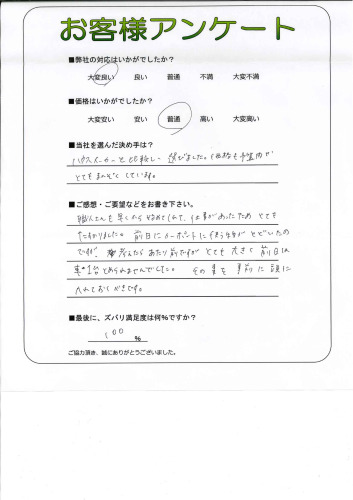 お客様アンケート
■弊社の対応はいかがでしたか?
大変良い 良い 普通 不満 大変不満
■価格はいかがでしたか?
大変安い 安い 普通 高い 大変高い
■当社を選んだ決め手は?
ハウスメーカーと比較し、選びました。価格も予算内で
とてもまんぞくしています。
■ご感想・ご要望などをお書き下さい。
職人さんも早くから始めてくれて、仕事があったため とても
たすかりました。前日にカーポートに使う部材がとどいたの
ですが、考えたらあたり前ですが とても大きく 前日は
車が1台とめられませんでした。その事を事前に頭に
入れておくべきです。
■最後に、ズバリ満足度は何%ですか?
100 %
ご協力頂き、誠にありがとうございました。